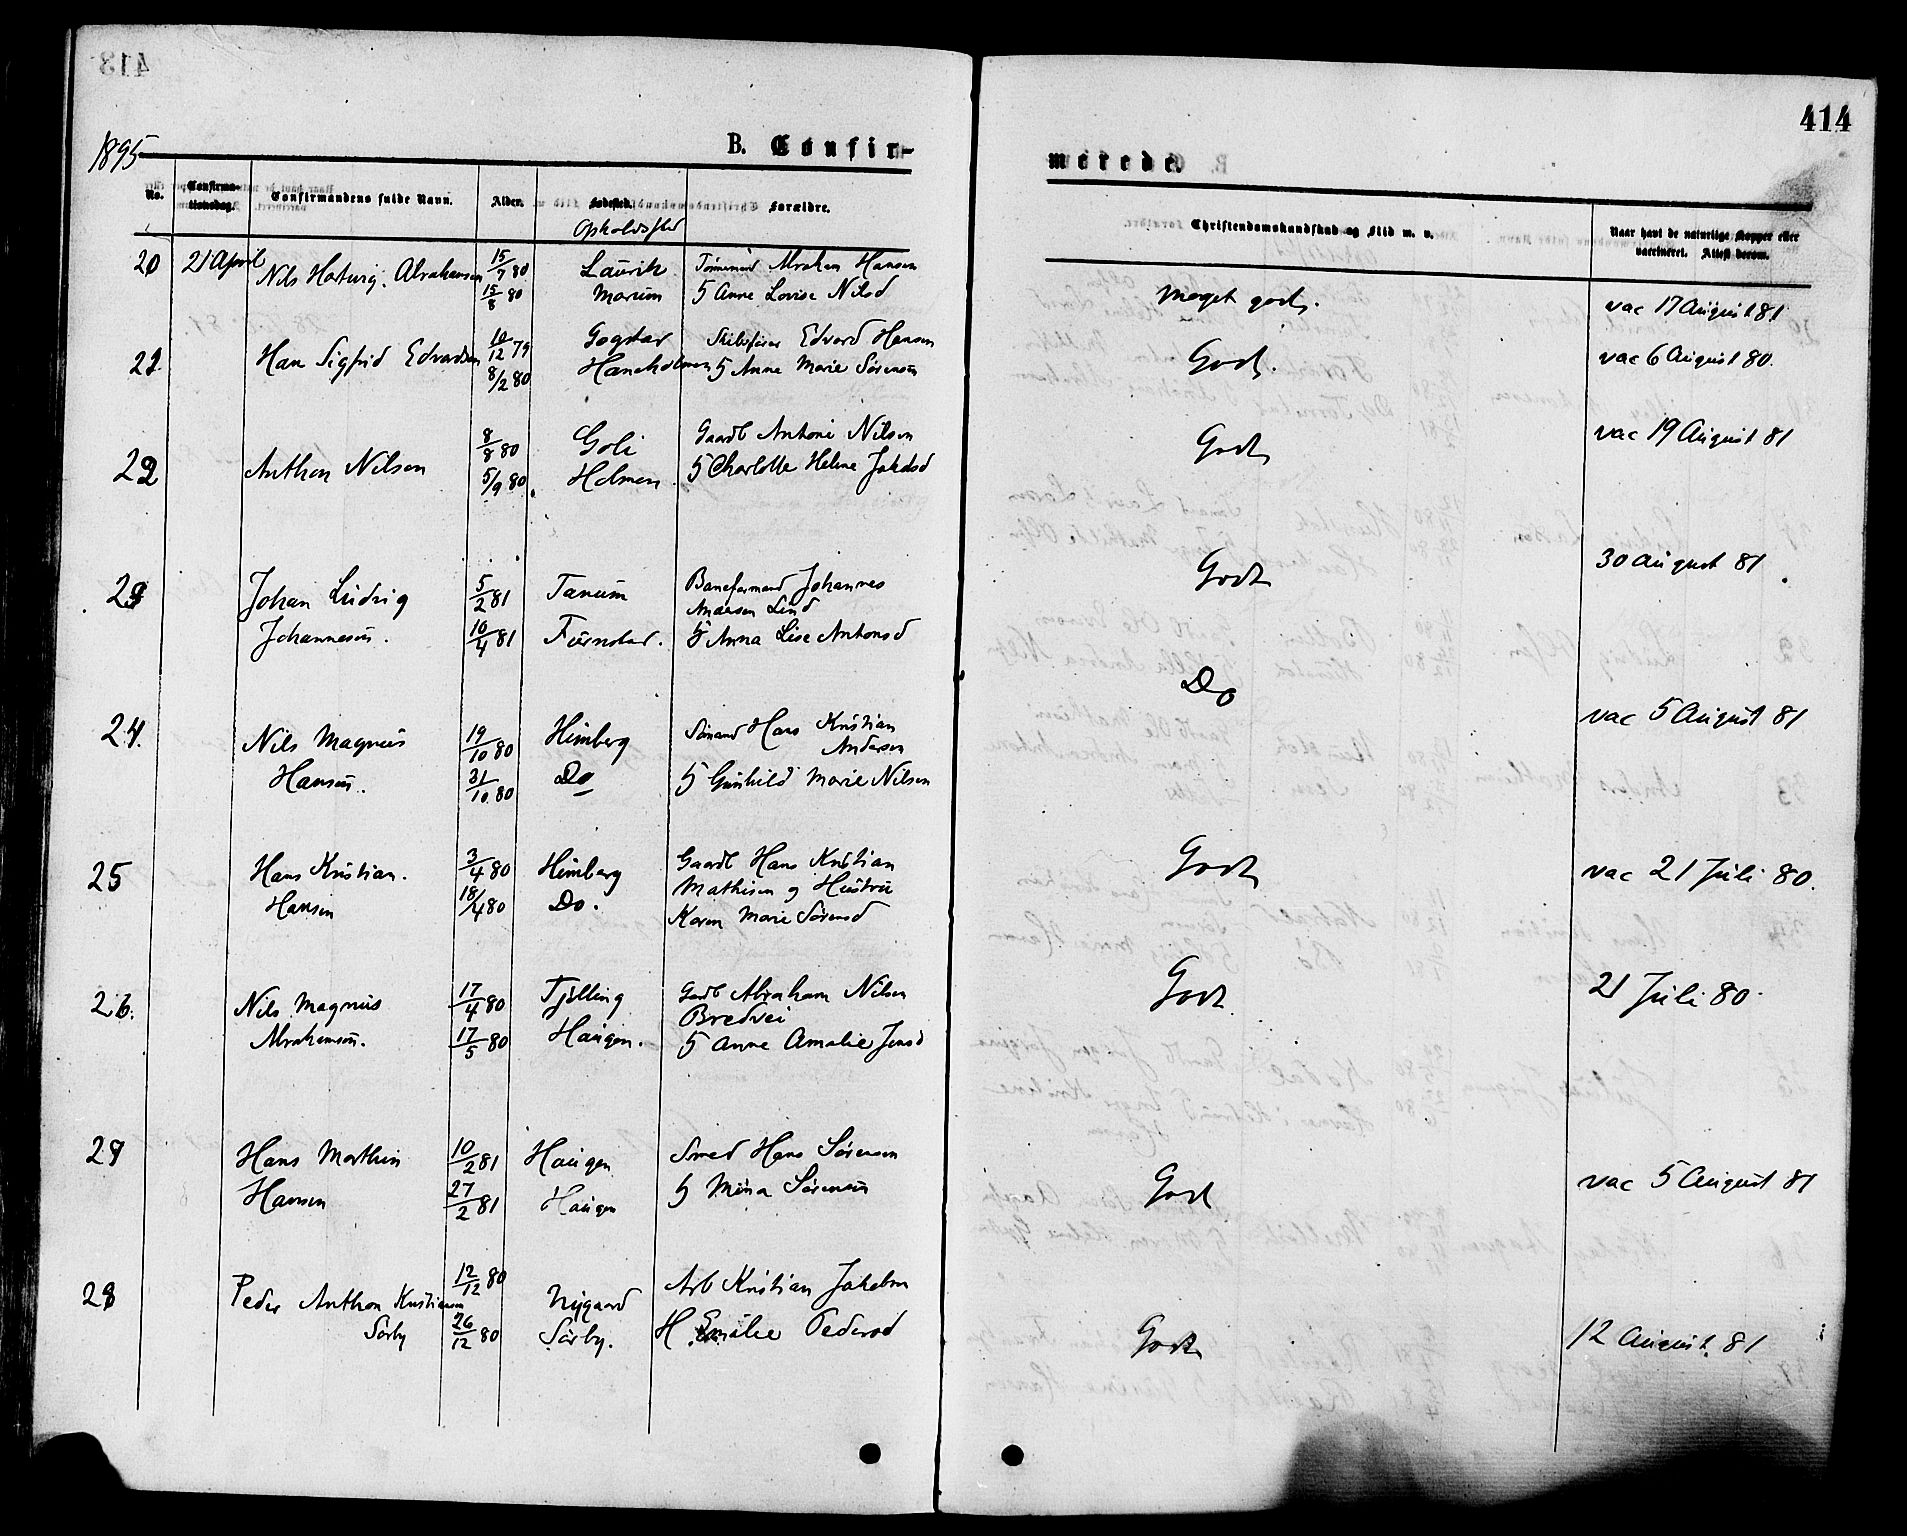 414
1895
B. Confir-
merede.
No.
Confirma-
tionsdag.
Confirmandens fulde Navn.
Alder.
Fødested.
Opholdssted
Forældre.
Christendomskundskab og Flid m. v.
Naar havt de naturlige Kopper eller
vaccineret. Attest derom.
20 21 April Nils Hartvig Abrahamsen 15/7 80 Laurik Abraham Hansen
15/8 80 Marum Anne Lovise Nilsd
Meget godt.
vac 17 August 81
21 Hans Sigfrid Edvardsen 10/12 79 Gogstad Skibsfører Edvard Hansen
8/2 80 Haneholmen Anne Marie Sørensen
Godt.
vac 6 August 80.
22 Anthon Nilsen 8/8 80 Goli Gaardb Antoni Nilsen
5/9 80 Holmen Charlotte Helene Jakobsd
Godt
vac 19 August 81
23 Johan Ludvig 5/2 81 Tanum Baneformand Johannes
Andersen Lind
Johannesen. 10/4 81 Furustad. Anna Lise Antonsd
Godt
30 August 81
24. Nils Magnus 19/10 80 Himberg Sømand Hans Kristian
Andersen
Hansen. 31/10 80 Do Gunhild Marie Nilsen
Do
vac 5 August 81
25 Hans Kristian. 3/4 80 Himberg Gaardb Hans Kristian
Mathisen og Hustru
Hansen 18/4 80 Do. Karen Marie Sørensd
Godt
vac 21 Juli 80.
26. Nils Magnus 17/4 80 Tjølling Gardb Abraham Nilsen
Bredvei
Abrahamsen. 17/5 80 Haugen. Anne Amalie Jensd
Godt
21 Juli 80.
27 Hans Marthin 10/2 81 Haugen Smed Hans Sørensen
Hansen 27/2 81 Haugen Mina Sørensen
Godt
vac 5 August 81
28 Peder Anthon Kristiansen 12/12 80 Nygaard Arb Kristian Jakobsen
Sørby 26/12 80 Sørby. H Emilie Pedersd
Godt
12 August. 81